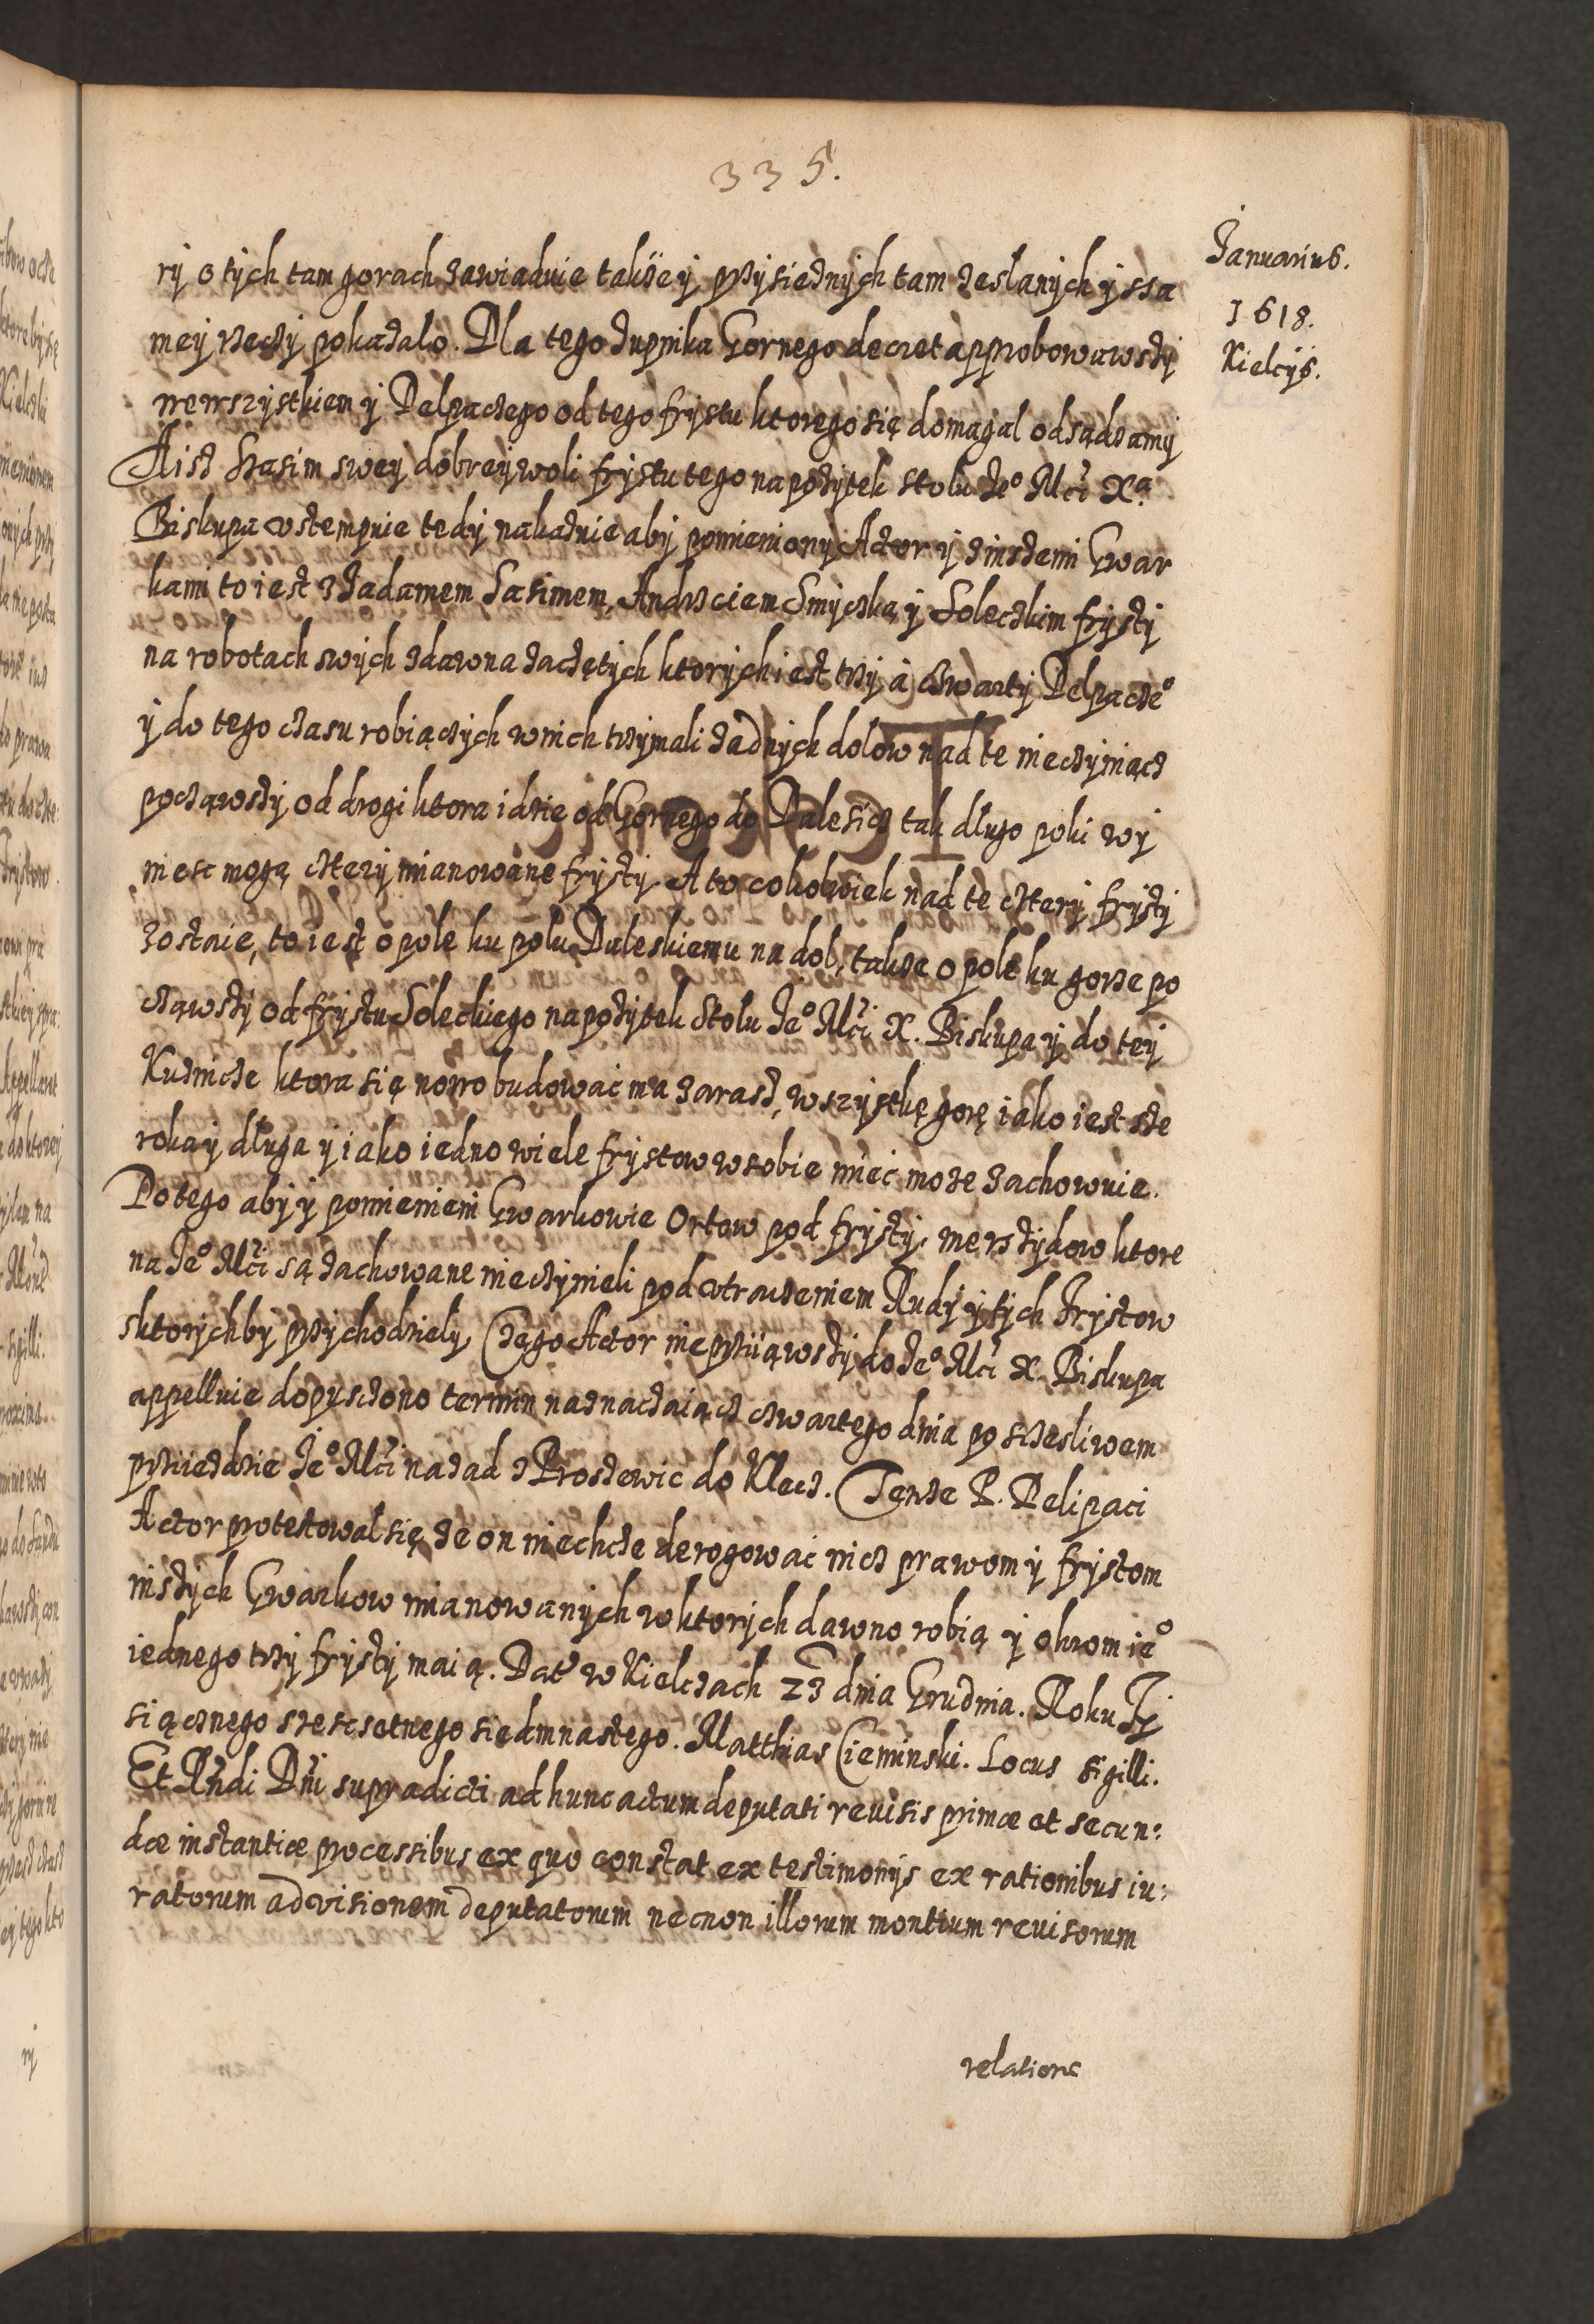 335.
Januarius.
1618.
Kielcÿs.
rÿ o tÿch tam gorach zawiaduie takze ÿ przÿsieznÿch tam zeslanÿch ÿ ssa
meÿ rzeczÿ pokazalo. Dla tego zupnika Gornego decret approbowawszÿ
wewszÿstkiem ÿ Delpaczego od tego frÿstu ktorego się domagal odsądzamÿ
Aisz Stasim sweÿ dobreÿ woli frÿstu tego na pozÿtek stolu Jeº Mći Xª
Biskupa vstempuie tedÿ nakazuie abÿ pomienionÿ Actor ÿ zinszemi Gwar
kami to iest z Jadamem Sasimem, Andrzeiem Smÿczką ÿ Soleczkim frÿstÿ
na robotach swÿch zdawna zaczętÿch ktorÿch iest trzÿ à czwartÿ Delpaczeº
ÿ do tego czasu robiączÿch w nich trzÿmali zadnÿch dolow nad te nieczÿniącz
począwszÿ od drogi ktora idzie od Gornego do Dalesicz tak dlugo poki wÿ
niesc mogą czterÿ mianowane frÿstÿ. A to cokolwiek nad te czterÿ frÿstÿ
zostaie, to iest o pole ku polu Daleskiemu na dol, takze o pole ku gorze po
cząwszÿ od frÿstu Soleckiego na pozÿtek Stolu Jeº Mći X. Biskupa ÿ do teÿ
Kuznicze ktora się nowo budowac ma zarasz, wszÿstkę gorę iako iest sze
roka ÿ dluga ÿ iako iedno wiele frÿstow w sobie miec moze zachowuie.
Do tego abÿ ÿ pomienieni Gwarkowie Ortow pod frÿstÿ, merszdow ktore
na Jeº Mći są zachowane nieczÿnieli pod vtraczeniem Rudÿ ÿ tÿch Frÿstow
sktorÿchbÿ przÿchodzielÿ Czego Actor nieprziiąwszÿ do Jeº Mći X. Biskupa
appelluie dopusczono termin naznaczaiącz czwartego dnia po sczesliwem
prziezdzie Jeº Mći nazad z Proszewic do Klecz. Tenze P. Delipaci
Actor protestowal się ze on niechcze derogowac nicz prawom ÿ frÿstom
inszÿch Gwarkow mianowanÿch w ktorÿch dawno robią ÿ okrom ieº
iednego trzÿ frÿstÿ maią. Dat w Kielczach 23 dnia Grudnia. Roku Tÿ
siącznego szescsetnego siedmnastego. Matthias Cieminski. Locus sigilli.
Et Rńdi Dńi supradicti ad hunc actum deputati reuisis primæ et secun:
dæ instantiæ processibus ex quo constat ex testimonÿs ex rationibus iu:
ratorum ad visionem deputatorum necnon illorum montium reuisorum
relatione